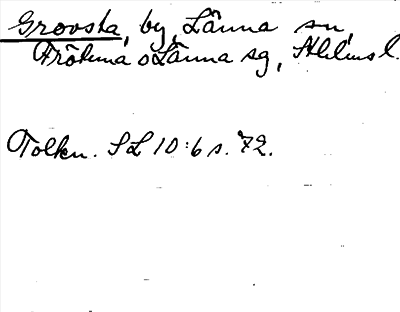 Grovsta, by, Länna sn,
Frötuna o Länna sg, Sthlms l.
Tolkn. SL 10:6 s. 72.